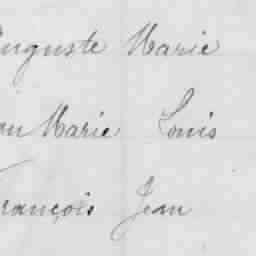 Auguste Marie
Jean Marie Louis
François Jean